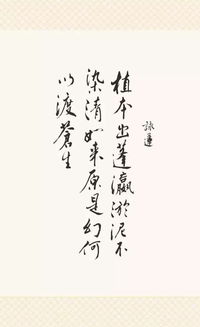 詠蓮
植本出蓬瀛淤泥不
染清如來原是幻何
以渡蒼生